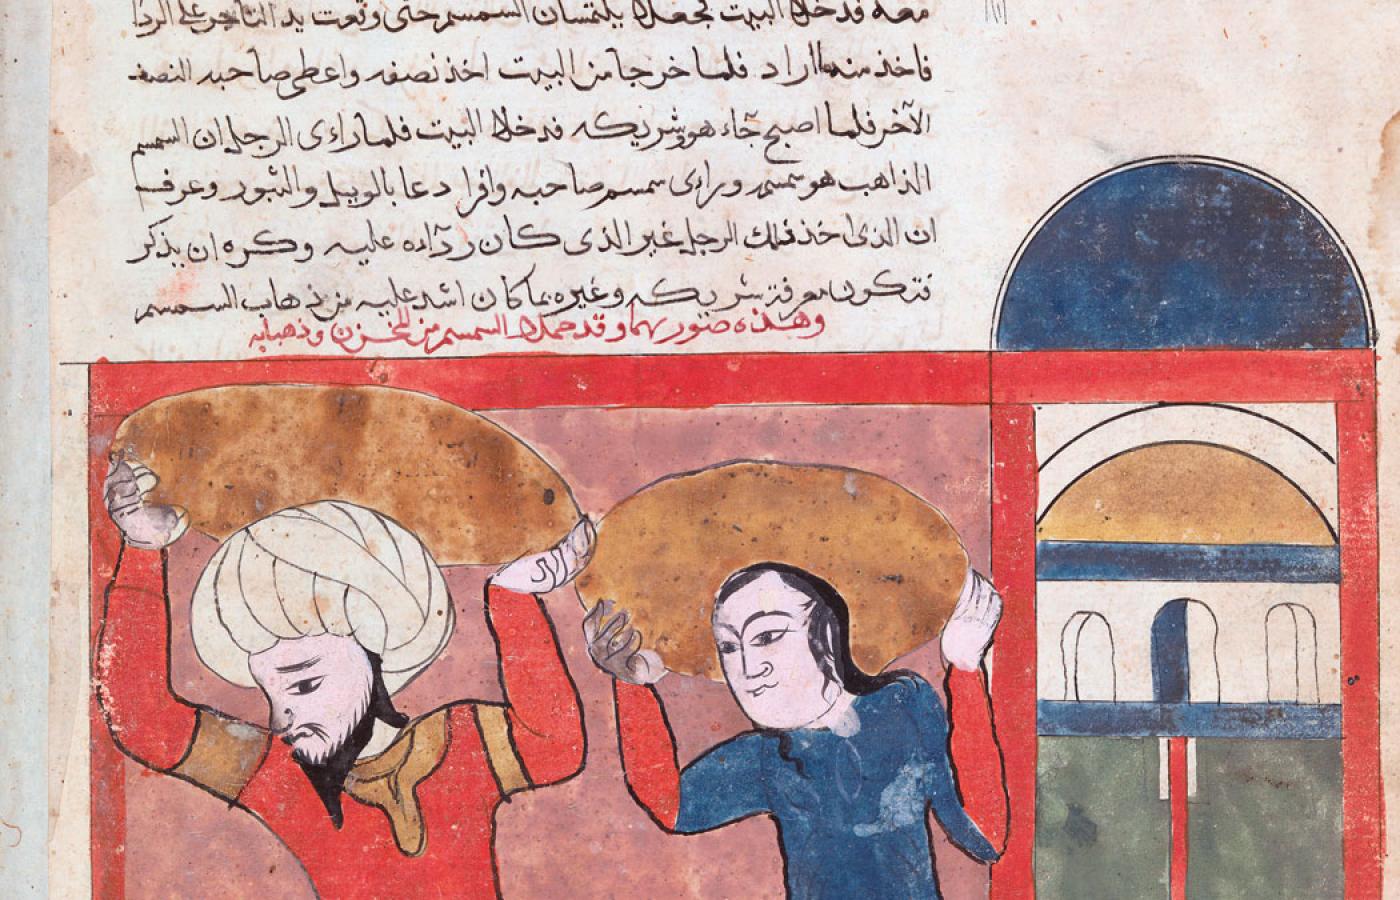 معه فدخلا البيت فجعلا يلتمسان السمسم حتى وقعت يد التاجر على الردا
فاخذ منه ما اراد فلما خرجا من البيت اخذ نصفه واعطى صاحبه النصف
الآخر فلما اصبح جاء هو وشريكه فدخلا البيت فلما راءى الرجل ان السمسم
الذاهب هو سمسمه وراءى سمسم صاحبه وافرا دعا بالويل والثبور وعرف
ان الذى اخذ ذلك الرجل غير الذى كان رداءه عليه وكره ان يذكر
فتكون معرفة شريكه وغيره بما كان اشد عليه من ذهاب السمسم
وهذه صورتهما وقد حملا السمسم من المخزن وذهبا به